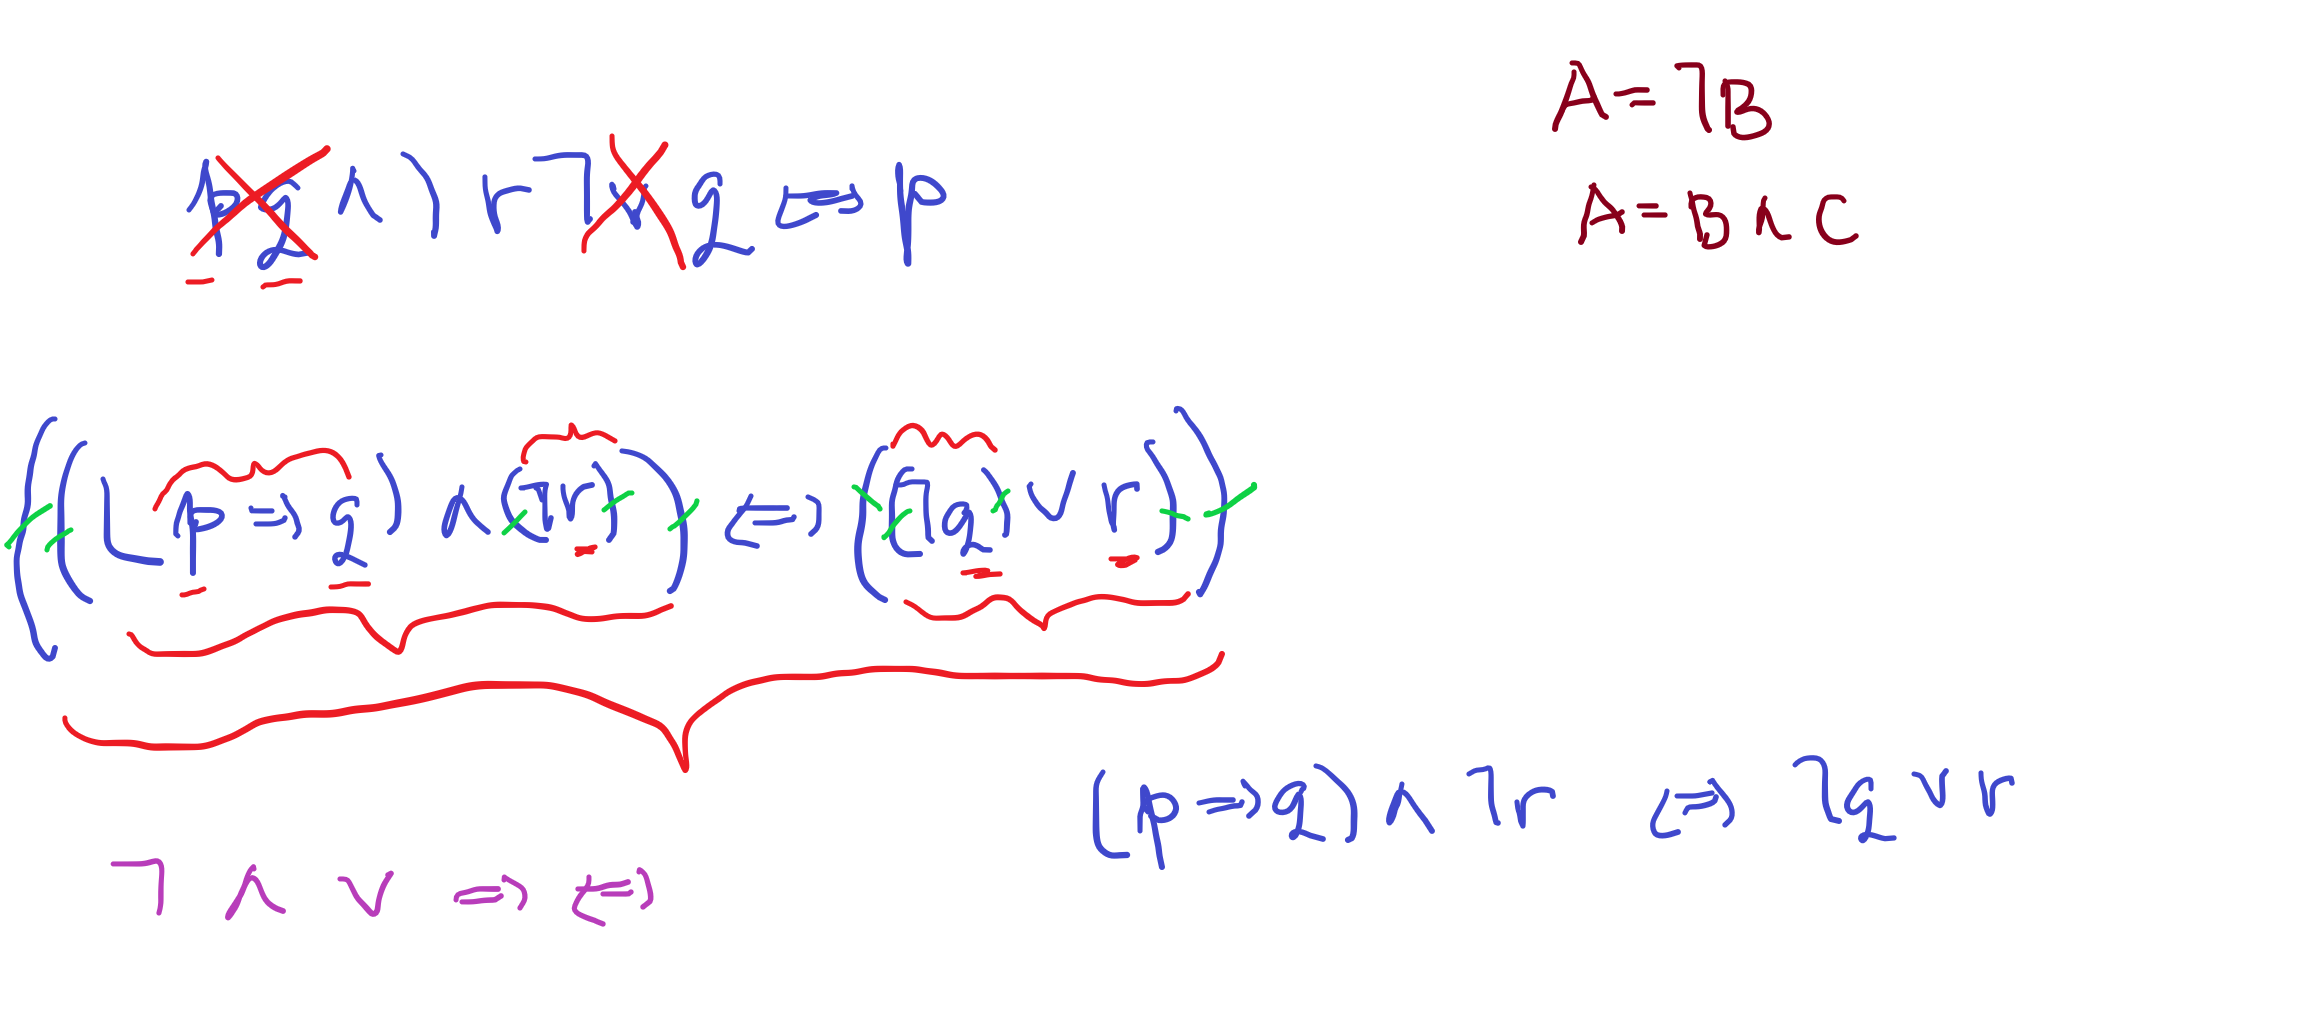 p q ∧ ) r ¬ ∨ q ⇔ p
A = ¬B
A = B ∧ C
(((p ⇒ q) ∧ (¬r)) ⇔ ((¬q) ∨ r))
(p ⇒ q) ∧ ¬r ⇔ ¬q ∨ r
¬ ∧ ∨ ⇒ ⇔